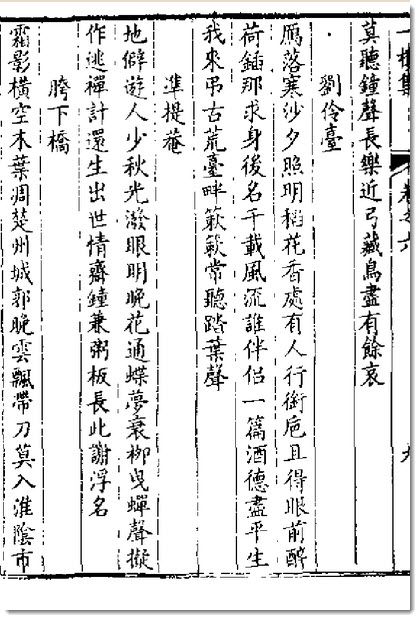 莫聽鐘聲長樂近弓藏鳥盡有餘哀
劉伶臺
鴈落寒沙夕照明稻花香處有人行銜巵且得眼前醉
荷鍤那求身後名千載風流誰伴侣一篇酒德盡平生
我來弔古荒臺畔簌簌常聽踏葉聲
準提菴
地僻遊人少秋光潑眼明晚花通蝶夢衰柳曳蟬聲擬
作逃禪計還生出世情齋鐘兼粥板長此謝浮名
胯下橋
霜影橫空木葉凋楚州城郭晚雲飄帶刀莫入淮隂市